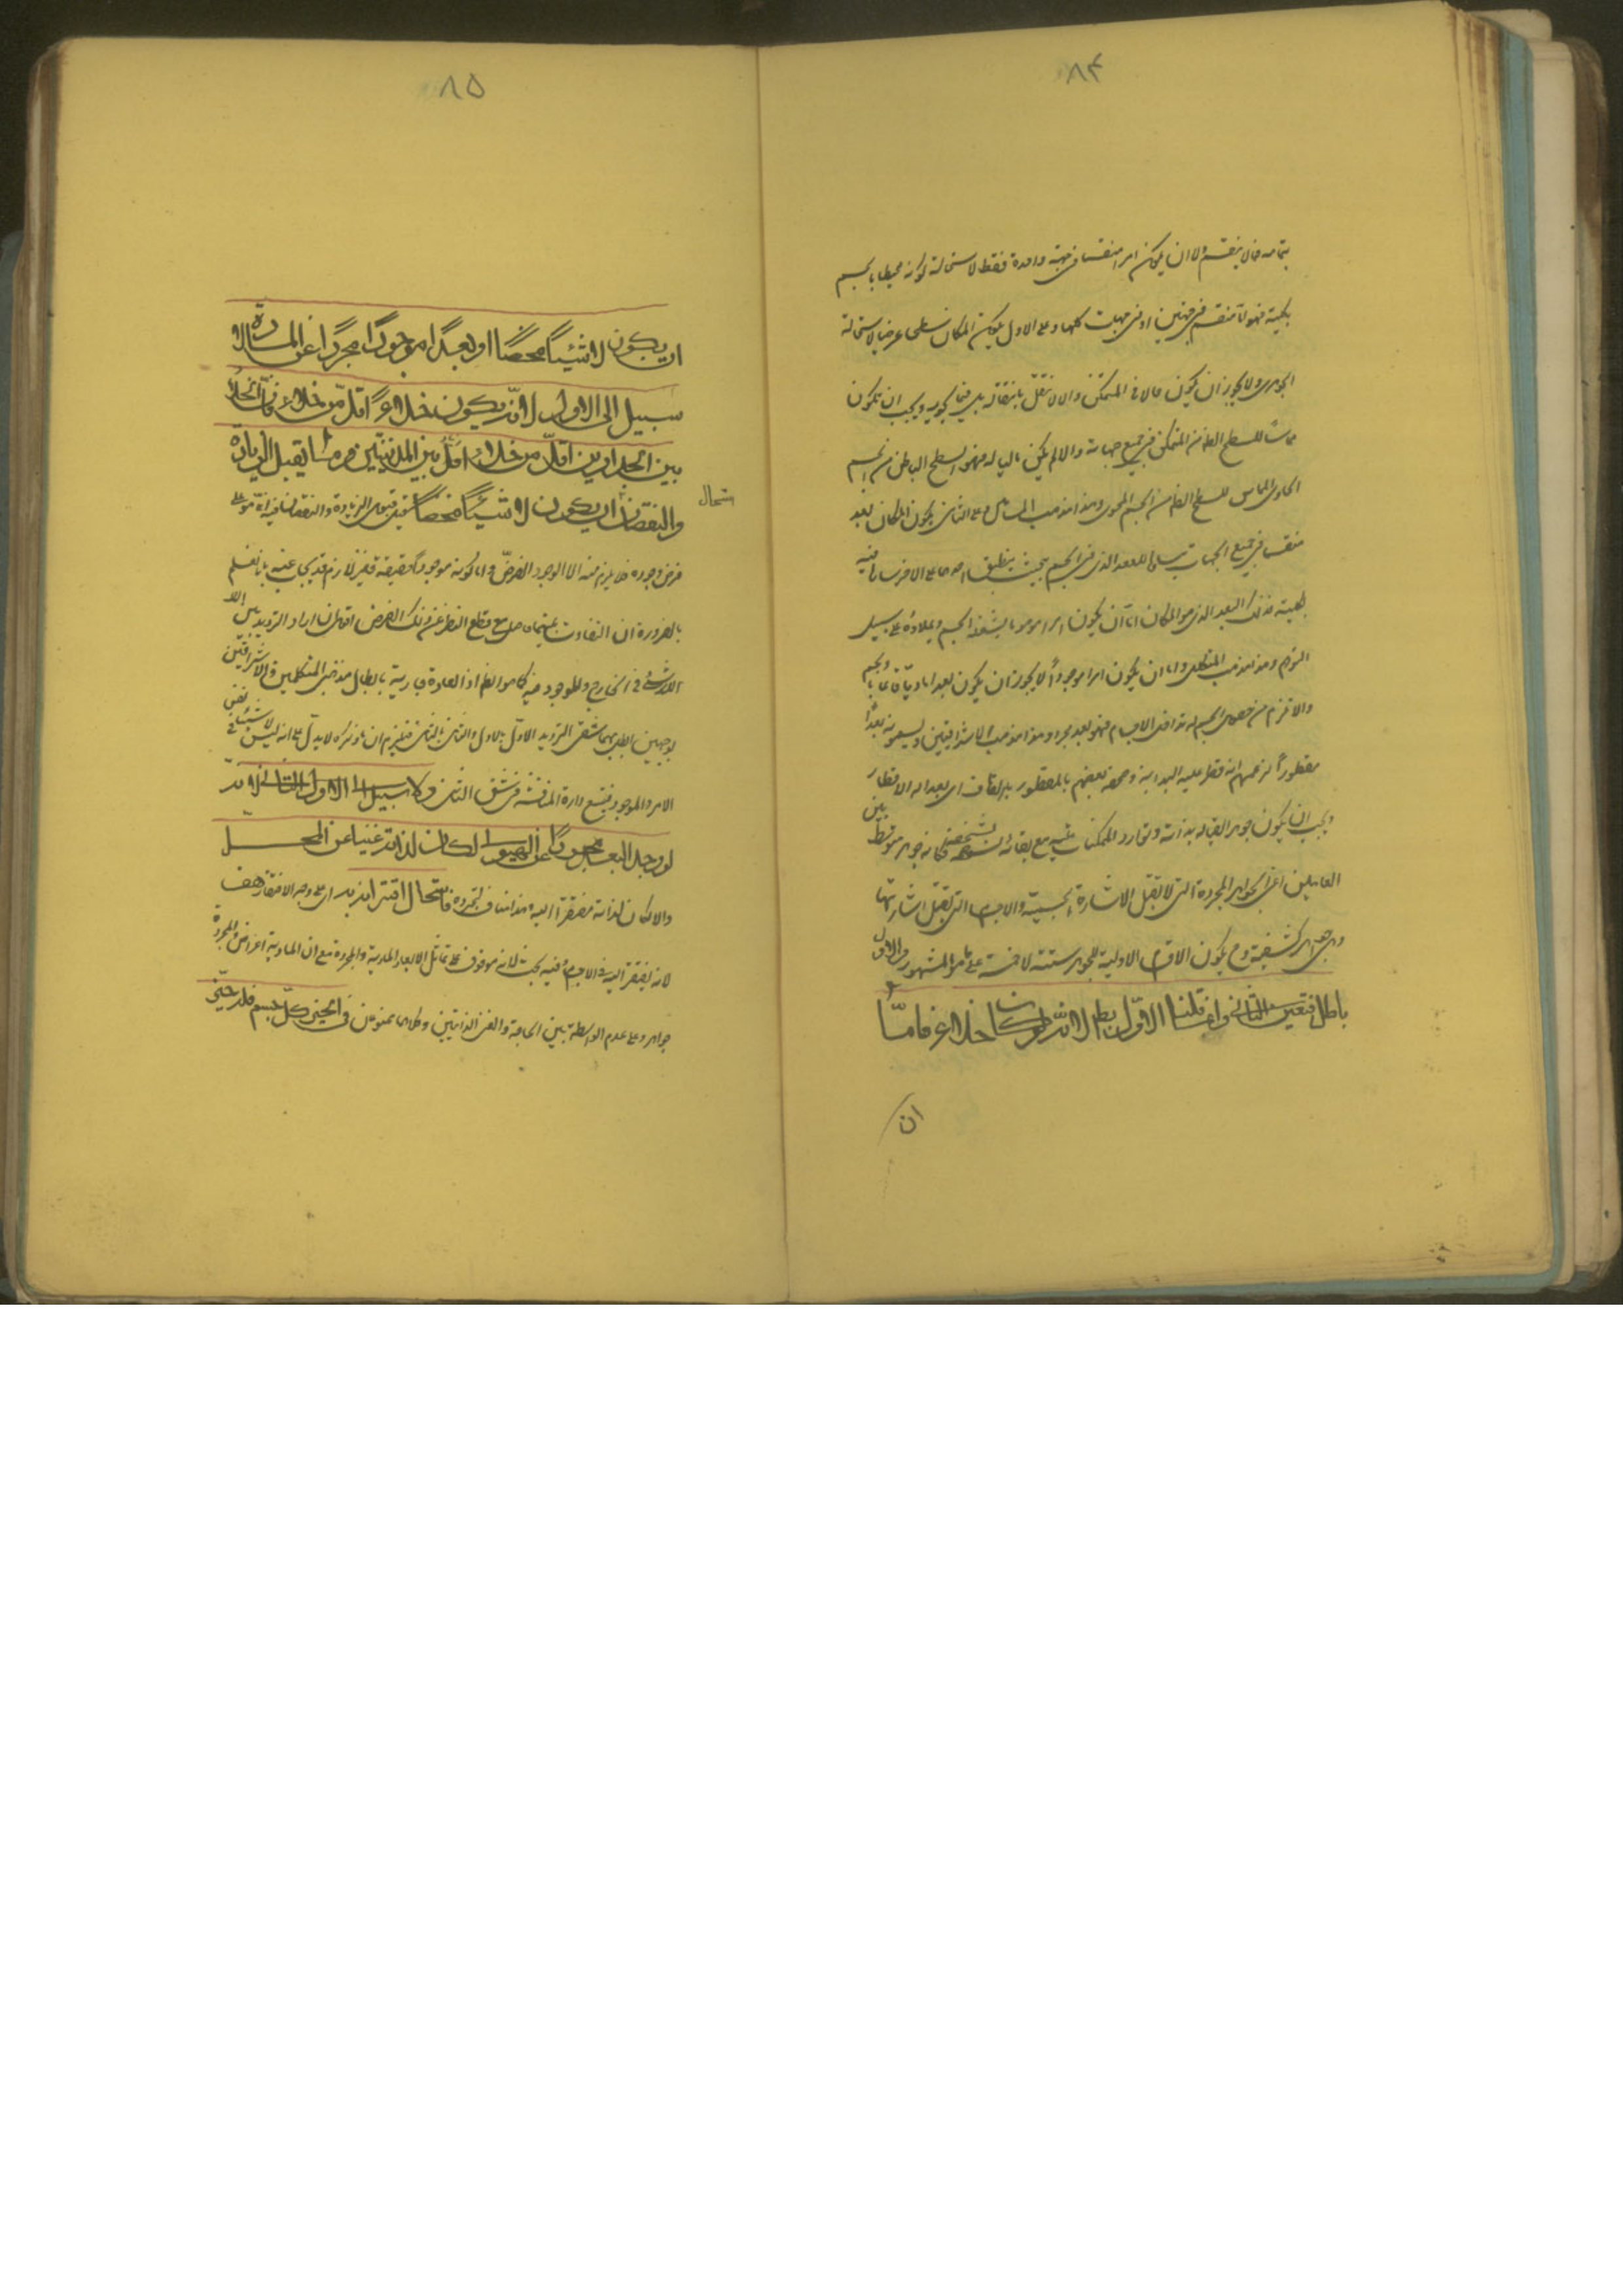 ٨۴
بتمامه فيما لا ينقسم ولا ان يكون امرا منقسما فى جهة واحدة فقط لاستحالة كونه محيطا بالجسم
بكليته فهو اما منقسم فى جهتين او فى جهات كلها وعلى الاول يكون المكان سطحا عرضيا لاستحالة
الجوهرى ولا يجوز ان يكون حالا فى المتمكن والا لانتقل بانتقاله بل فيما يحويه ويجب ان يكون
مماسا للسطح الظاهر من المتمكن فى جميع جهاته والا لم يكن ماليا له فهو السطح الباطن من الجسم
الحاوى المماس للسطح الظاهر من الجسم المحوى وهذا مذهب المشائين وعلى الثانى يكون المكان بعدا
منقسما فى جميع الجهات مساويا للبعد الذى فى الجسم بحيث ينطبق احدهما على الاخر ساريا فيه
بكليته فذلك البعد الذى هو المكان اما ان يكون امرا موهوما يشغله الجسم ويملاؤه على سبيل
التوهم وهذا مذهب المتكلمين واما ان يكون امرا موجودا ولا يجوز ان يكون بعدا ماديا قائما بالجسم
والا لزم من حصول الجسم فيه تداخل الاجسام فهو بعد مجرد وهذا مذهب الاشراقيين ويسمونه بعدا
مفطورا لزعمهم انه فطر عليه البداهة وصحفه بعضهم بالمقطور بالقاف اى بعد له الاقطار
ويجب ان يكون جوهرا لقيامه بذاته وتوارد المتمكنات عليه مع بقائه بشخصه فكانه جوهر متوسط بين
العالمين اعنى الجواهر المجردة التى لا تقبل الاشارة الحسية والاجسام التى تقبل اشارتها
وهى جواهر كثيفة وح يكون الاقسام الاولية للجوهر ستة لا خمسة على ما هو المشهور والاول
باطل فتعين الثانى وانما قلنا الاول باطل لانه لو كان خلاء فاما
ان
٨۵
ان يكون لا شيئا محضا او بعدا موجودا مجردا عن المادة لا
سبيل الى الاول لانه يكون خلاء اقل من خلاء فان الخلاء
بين الجدارين اقل من خلاء بين المدينتين وما يقبل الزيادة
والنقصان استحال ان يكون لا شيئا محضا فان قبول الزيادة والنقصان فيه انما هو على
فرض وجوده فلا يلزم منه الا الوجود الفرضى واما كونه موجودا حقيقة فغير لازم قد يجاب عنه بانا نعلم
بالضرورة ان التفاوت بينهما حاصل مع قطع النظر عن ذلك الفرض اقول ان اراد الترديد بين اللا
شئ فى الخارج والموجود فيه كما هو الظاهر اذ العادة جارية بابطال مذهبى المتكلمين والاشراقيين
بوجهين ابطل بهما شقى الترديد الاول بالاول والثانى بالثانى فيلزم ان ما ذكره لا يدل على انه ليس لا شيئا فى نفس
الامر والموجود فيتسع دائرة المناقشة فى شق الثانى ولا سبيل الى الثانى لانه
لو وجد البعد مجردا عن الهيولى لكان لذاته غنيا عن المحل
والا لكان لذاته مفتقرا اليه وهذا مناف لتجرده فاستحال اقترانه به اى على وجه الافتقار هف
لانه يفتقر اليه فى الاجسام وفيه بحث لانه موقوف على تماثل الابعاد المادية والمجردة مع ان المادية اعراض والمجردة
جواهر وعلى عدم الواسطة بين الحاجة والغنى الذاتيين وكلاهما ممنوعان فى الحيز كل جسم فله حيز
استحال